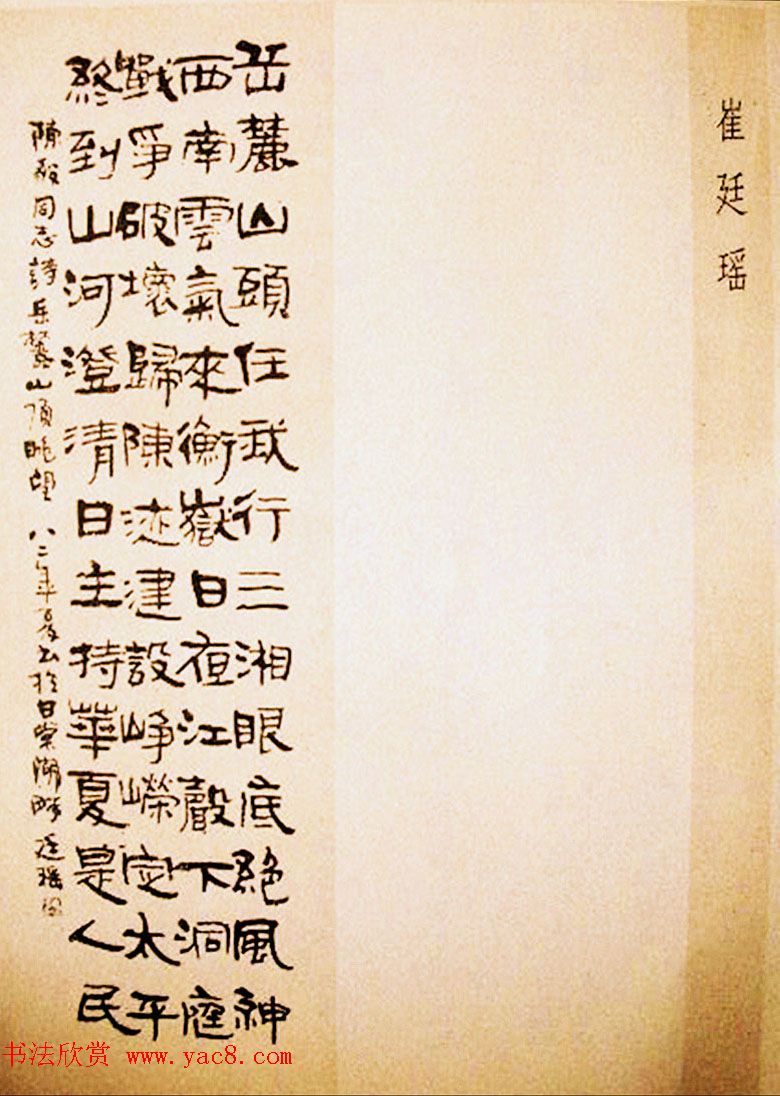 崔廷瑶
岳麓山頭任我行三湘眼底絶風神
西南雲氣來衡嶽日夜江聲下洞庭
戰爭破壞歸陳迹建設崢嶸定太平
終到山河澄清日主持華夏是人民
陳毅同志詩岳麓山頂眺望 八二年夏书於甘棠湖畔 廷瑶
书法欣赏 www.yac8.com